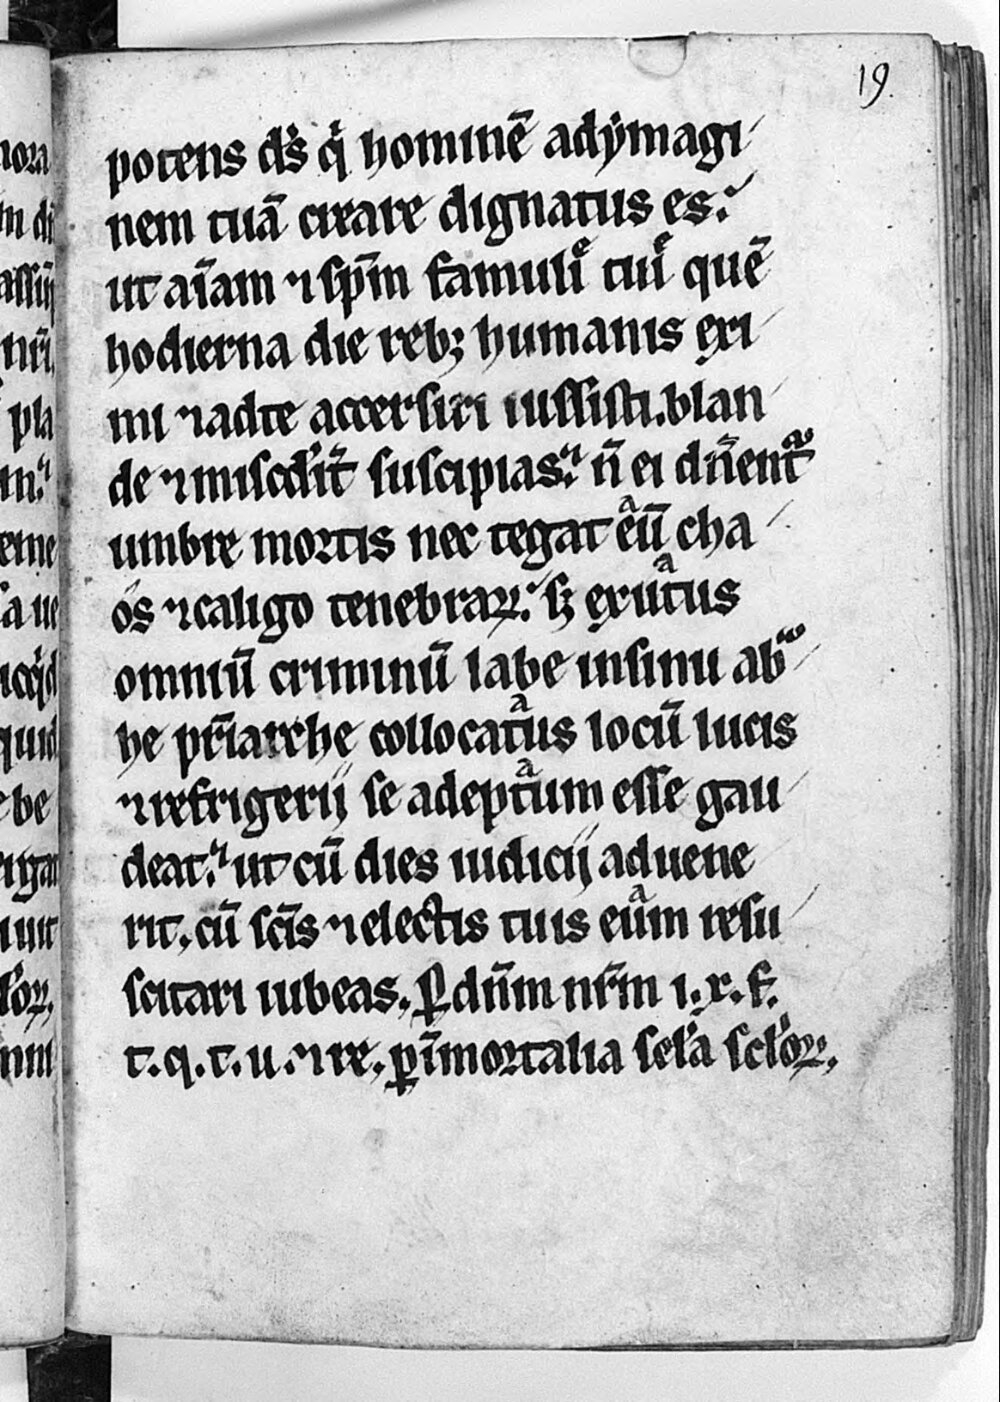 19.
potens ds̄ qͥ hominē adẏmagi
nem tuā creare dignatus es.
ut aīam ⁊ sp̄m famuliͤ tuiͤ quē
hodierna die rebꝫ humanis exi
mi ⁊ adte accersiri iussisti. blan
de ⁊ misc̄dit̄ suscipias. n̄ ei dn̄ent᷒
umbre mortis nec tegat eͣū cha
ós ⁊ caligo tenebraꝝ. sꝫ exutͣus
omniū criminū labe insinu ab
he pr̄iarche collocatͣus locū lucis
⁊ refrigerij se adeptͣum esse gau
deat. ut cū dies iudicij aduene
rit. cū sc̄is ⁊ electis tuis euͣm resu
scitari iubeas. ꝑ dn̄m nr̄m i. x. f.
t. q. t. u. ⁊ re. ꝑ īmortalia sel̄a scl̄oꝝ.